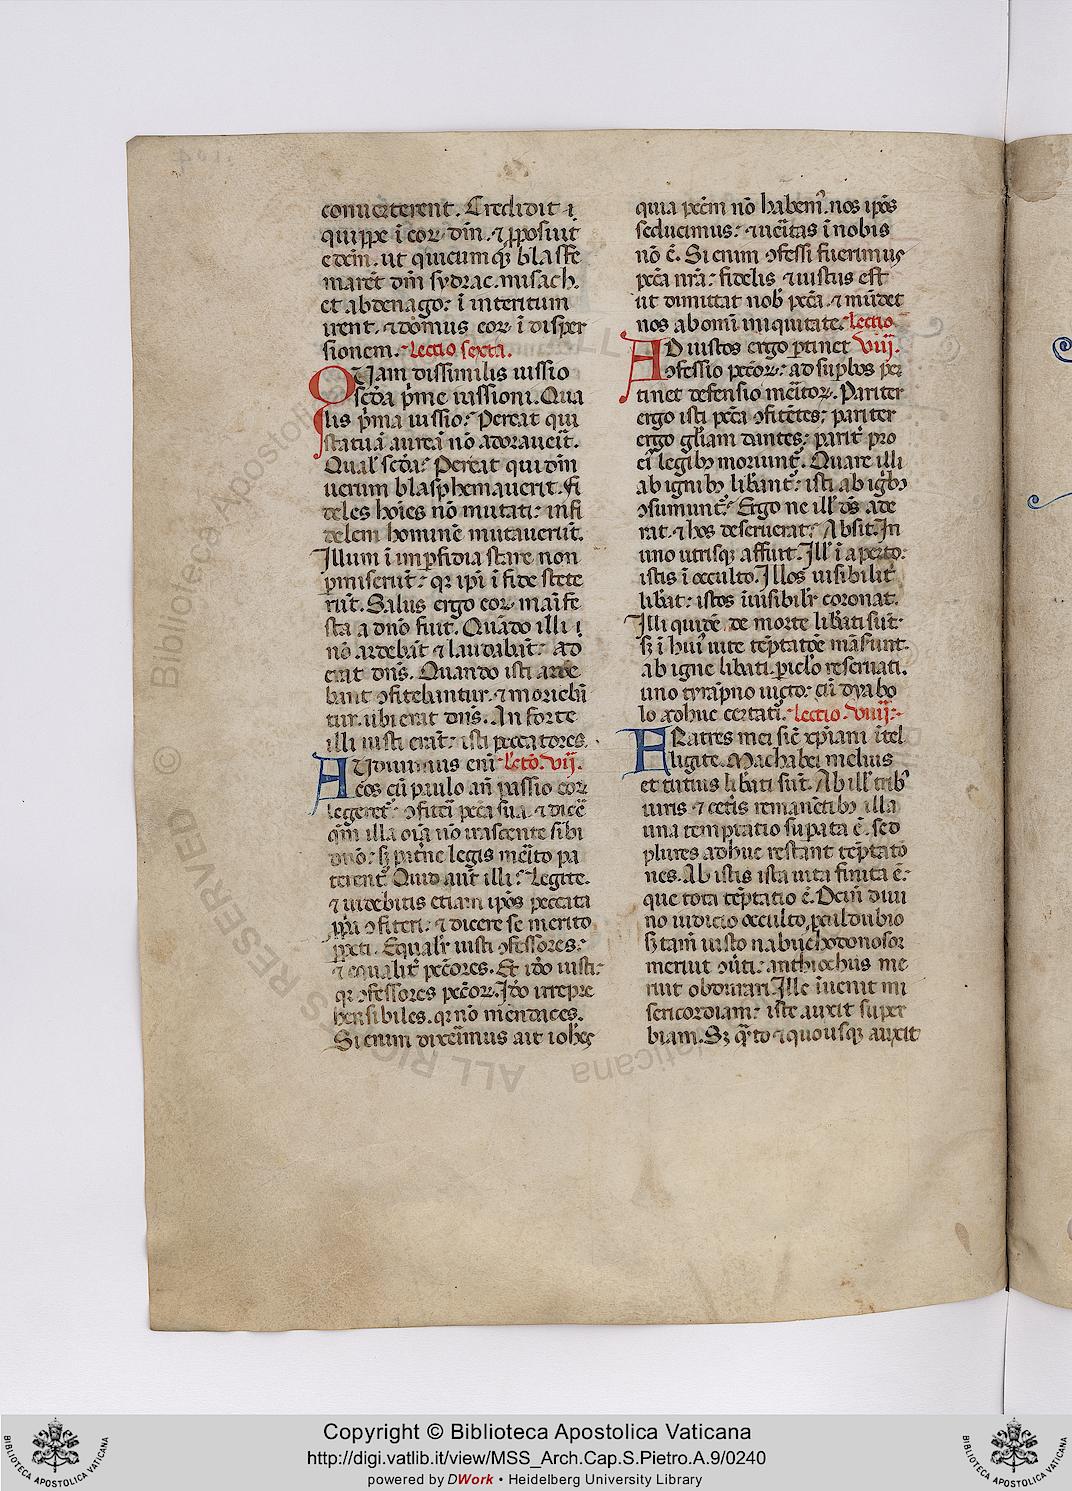 conuerterent. Credidit i
quippe ĩ eor dñm. ⁊ p̃posuit
edem. ut quicumqꝫ blasfe
marẽt dm̃ sydrac. misach.
et abdenago: ĩ interitum
irent. ⁊ domus eoꝝ ĩ disper
sionem. Lectio sexta.
QUam dissimilis iussio
scða p̃me iussioni. Qua
lis p̃ma iussio: Pereat qui
statuã aureã nõ adorauerit.
Qual' scða: Pereat qui dm̃
uerum blasphemauerit. Fi
deles hoĩes nõ mutati: infi
delem hominẽ mutauerũt.
Illum ĩ impfidia stare non
pmiserũt: qꝛ ipi ĩ fide stete
rũt. Salus ergo eoꝝ manife
sta a dño fuit. Quãdo illi i
nõ ardebãt ⁊ laudabãt: ad
erat dñs. Quando isti arde
bant ꝯfitebuntur. ⁊ moriebñ
tur. ubi erat dñs. An forte
illi iusti erãt: isti peccatores.
AUdiuimus eni Lctõ. vij.
eos cũ paulo añ passio eoꝝ
legeretˀ ꝯfitei pcc̃a sua. ⁊ dicẽ
qm̃ illa oĩa nõ irascente sibi
dño: sꝫ pat̃ne legis meĩto pa
terentˀ. Quid aut̃ illi: Legite.
⁊ uidebitis etiam ipõs peccata
ppa ꝯfiteri: ⁊ dicere se merito
ppeti. Equalr̃ iusti ꝯfessores:
⁊ equalit̃ pcc̃ores. Et iõo iusti:
qꝛ ꝯfessores pcc̃oꝝ. Iõo irrepre
hensibiles. qꝛ nõ mendaces.
Si enim dixeimus ait iohẽs
quia pcc̃m nõ habemˀ. nos ipõs
seducimus: ⁊ ueĩtas ĩ nobis
nõ ẽ. Si enim ꝯfessi fuerimus
pcc̃a nrã: fidelis ⁊ iustus est
ut dimittat nob̃ pcc̃a. ⁊ mũdet
nos ab omi iniquitate. Lectio
AD iustos ergo ptinet viij.
ꝯfessio pcc̃oꝝ: ad supbos per
tinet defensio meĩtoꝝ. Pariter
ergo isti pcc̃a ꝯfitẽtes; pariter
ergo gl'iam dantes; parit̃ pro
eiˀ legibꝫ moriuntˀ. Quare illi
ab ignibꝫ libãntˀ: isti ab igibꝫ
ꝯsumuntˀ: Ergo ne ill' dš ade
rat. ⁊ hos deseruerat: Absit. In
uno utrisqꝫ affuit. Ill' ĩ aperto:
istis ĩ occulto. Illos uisibilit̃
libãt: istos ĩuisibilr̃ coronat.
Illi quidẽ de morte libati sũt:
sꝫ ĩ huiˀ uite tẽptatõe mãsunt.
ab igne libati. piclo reseruati.
uno tyrãpno uicto: cũ dyabo
lo adhuc certati. Lectio. viiij:
FRatres mei sic̃ xp̃iani ĩtel
ligite. Machabei melius
et tutius libati sũt. Ab ill' tribˀ
uiris ⁊ cet̃is remanẽtibꝫ illa
una temptatio supata ẽ. sed
plures adhuc restant tẽptatõ
nes. Ab istis ista uita finita ẽ:
que tota tẽptatio ẽ. Dein diui
no iudicio occulto. pculdubio
sꝫ tam̃ iusto nabuchodonosor
meruit ꝯũti: anthiochus me
ruit obdurari. Ille ĩuenit mi
sericordiam: iste auxit super
biam. Sꝫ q̃to ⁊ quousqꝫ auxit
Copyright © Biblioteca Apostolica Vaticana
http://digi.vatlib.it/view/MSS_Arch.Cap.S.Pietro.A.9/0240
powered by DWork • Heidelberg University Library
BIBLIOTECA APOSTOLICA VATICANA
BIBLIOTECA APOSTOLICA VATICANA
© Biblioteca Apostolica Vaticana
ALL RIGHTS RESERVED